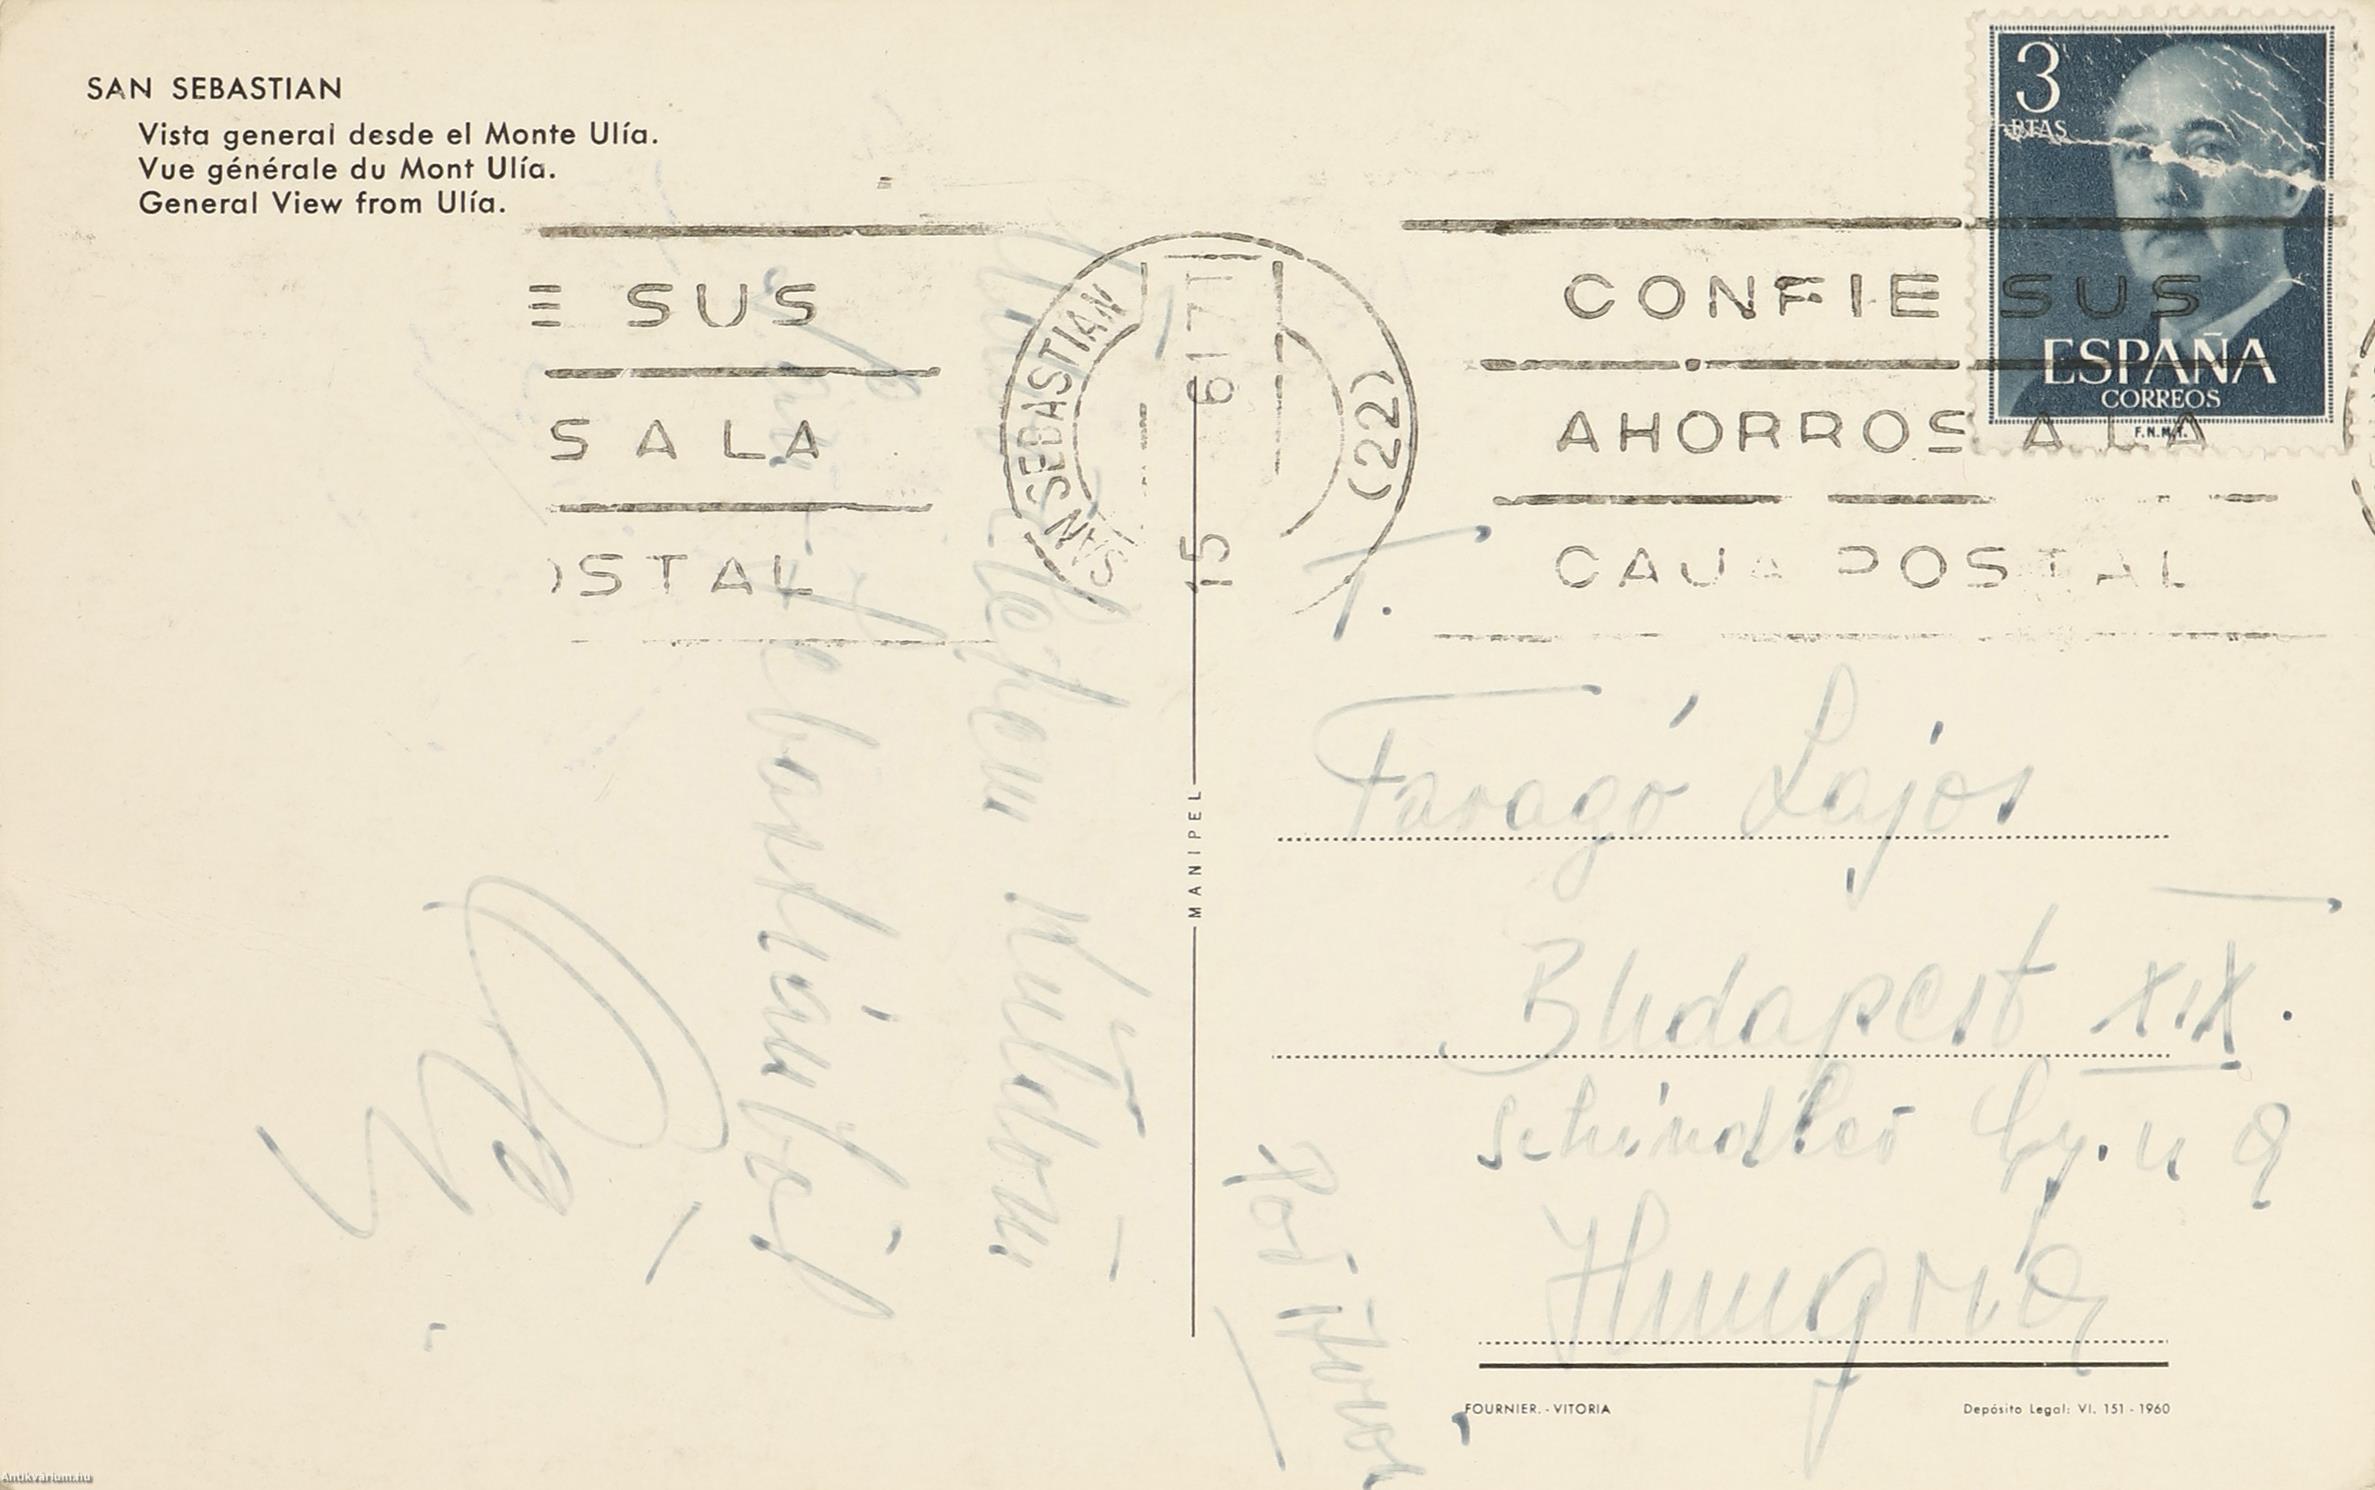 SAN SEBASTIAN
Vista general desde el Monte Ulía.
Vue générale du Mont Ulía.
General View from Ulía.
3
PTAS
ESPAÑA
CORREOS
F.N.M.T.
E SUS
S A LA
OSTAL
SAN SEBASTIAN
(22)
CONFIE SUS
AHORROS A LA
CAJA POSTAL
T.
Faragó Lajos
Budapest XIX.
Schindler Gy. u 9
Hungria
küldöm
Sebastiánból
MANIPEL
FOURNIER. - VITORIA
Depósito Legal: VI. 151 - 1960
Antikvárium.hu